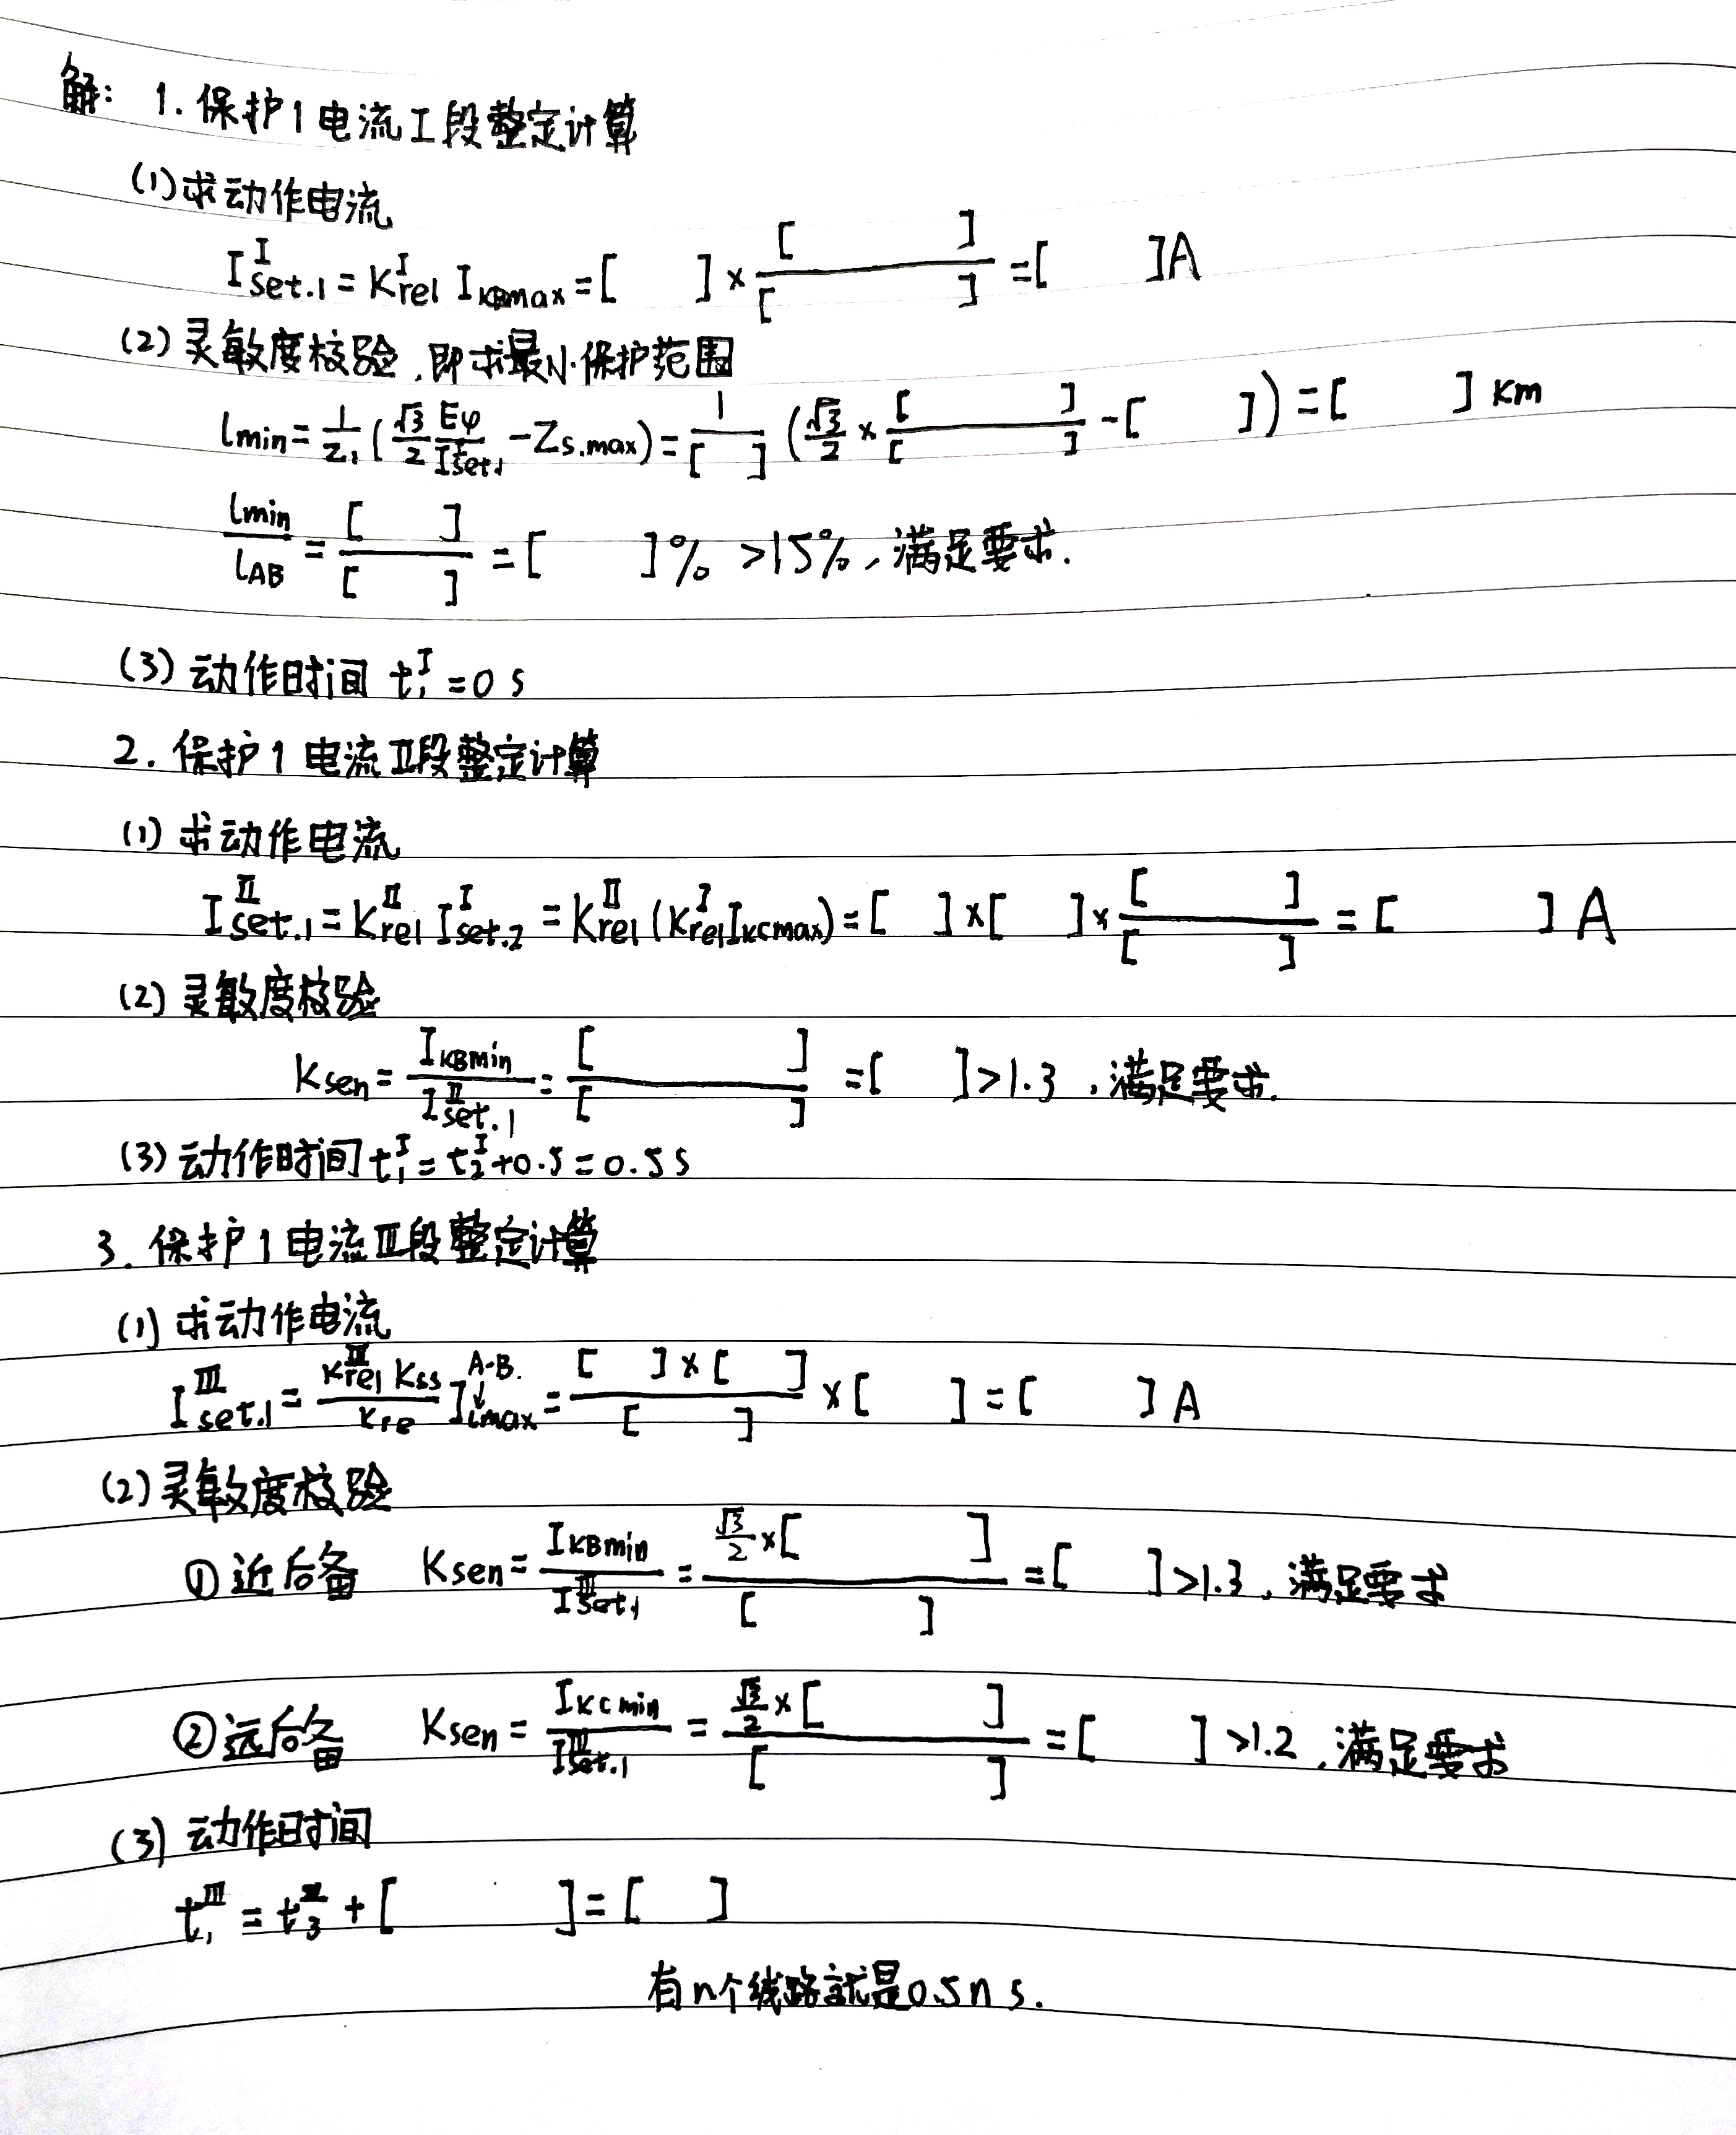 解: 1. 保护1电流I段整定计算
(1)求动作电流
I_{set.1}^{I} = K_{rel}^{I} I_{KBmax} = [ ] × \frac{[ ]}{[ ]} = [ ]A
(2) 灵敏度校验,即求最小保护范围
l_{min} = \frac{1}{Z_1} ( \frac{\sqrt{3}}{2} \frac{E_φ}{I_{set.1}^{I}} - Z_{s.max} ) = \frac{1}{[ ]} ( \frac{\sqrt{3}}{2} × \frac{[ ]}{[ ]} - [ ] ) = [ ] km
\frac{l_{min}}{l_{AB}} = \frac{[ ]}{[ ]} = [ ]% >15%,满足要求.
(3) 动作时间 t_1^{I} = 0 s
2. 保护1电流II段整定计算
(1) 求动作电流
I_{set.1}^{II} = K_{rel}^{II} I_{set.2}^{I} = K_{rel}^{II} (K_{rel}^{I} I_{KCmax}) = [ ] × [ ] × \frac{[ ]}{[ ]} = [ ] A
(2) 灵敏度校验
K_{sen} = \frac{I_{KBmin}}{I_{set.1}^{II}} = \frac{[ ]}{[ ]} = [ ] >1.3 ,满足要求.
(3) 动作时间 t_1^{I} = t_2^{I} + 0.5 = 0.5 s
3. 保护1电流III段整定计算
(1) 求动作电流
I_{set.1}^{III} = \frac{K_{rel}^{III} K_{ss}}{K_{re}} I_{Lmax}^{A-B.↓} = \frac{[ ] × [ ]}{[ ]} × [ ] = [ ] A
(2) 灵敏度校验
① 近后备 K_{sen} = \frac{I_{KBmin}}{I_{set.1}^{III}} = \frac{\frac{\sqrt{3}}{2} × [ ]}{[ ]} = [ ] >1.3 ,满足要求
② 远后备 K_{sen} = \frac{I_{KCmin}}{I_{set.1}^{III}} = \frac{\frac{\sqrt{3}}{2} × [ ]}{[ ]} = [ ] >1.2 ,满足要求
(3) 动作时间
t_1^{III} = t_3^{III} + [ ] = [ ]
有n个线路就是0.5n s.